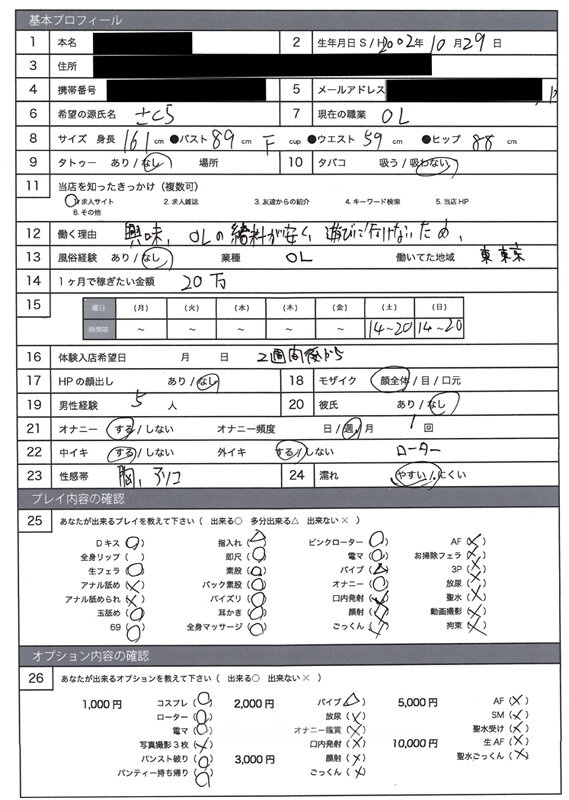 基本プロフィール
1 本名 2 生年月日 S / H 2002年 10月 29日
3 住所
4 携帯番号 5 メールアドレス
6 希望の源氏名 さくら 7 現在の職業 OL
8 サイズ 身長 161 cm ●バスト 89 cm F cup ●ウエスト 59 cm ●ヒップ 88 cm
9 タトゥー あり / なし 場所 10 タバコ 吸う / 吸わない
11 当店を知ったきっかけ (複数可)
求人サイト 2. 求人雑誌 3. 友達からの紹介 4. キーワード検索 5. 当店 HP
6. その他
12 働く理由 興味、OLの給料が安く、遊びに行けないため、
13 風俗経験 あり / なし 業種 OL 働いてた地域 東京
14 1ヶ月で稼ぎたい金額 20万
15 曜日 (月) (火) (水) (木) (金) (土) (日)
時間帯 ~ ~ ~ ~ ~ 14~20 14~20
16 体験入店希望日 月 日 2週間後から
17 HP の顔出し あり / なし 18 モザイク 顔全体 / 目 / 口元
19 男性経験 5 人 20 彼氏 あり / なし
21 オナニー する / しない オナニー頻度 日 / 週 / 月 1 回
22 中イキ する / しない 外イキ する / しない ローター
23 性感帯 胸、クリコ 24 濡れ やすい / にくい
プレイ内容の確認
25 あなたが出来るプレイを教えて下さい ( 出来る○ 多分出来る△ 出来ない× )
Dキス (○) 指入れ (△) ピンクローター (○) AF (×)
全身リップ ( ) 即尺 (○) 電マ (○) お掃除フェラ (×)
生フェラ (○) 素股 (○) バイブ (△) 3P (×)
アナル舐め (×) バック素股 (○) オナニー (○) 放尿 (×)
アナル舐められ (×) パイズリ (○) 口内発射 (×) 聖水 (×)
玉舐め (○) 耳かき (○) 顔射 (×) 動画撮影 (×)
69 (○) 全身マッサージ (○) ごっくん (×) 拘束 (×)
オプション内容の確認
26 あなたが出来るオプションを教えて下さい ( 出来る○ 出来ない× )
1,000円 コスプレ (○) 2,000円 バイブ (△) 5,000円 AF (×)
ローター (○) 放尿 (×) SM (×)
電マ (○) オナニー鑑賞 (×) 聖水受け (×)
写真撮影3枚 (×) 口内発射 (×) 10,000円 生AF (×)
パンスト破り (○) 3,000円 顔射 (×) 聖水ごっくん (×)
パンティー持ち帰り (○) ごっくん (×)